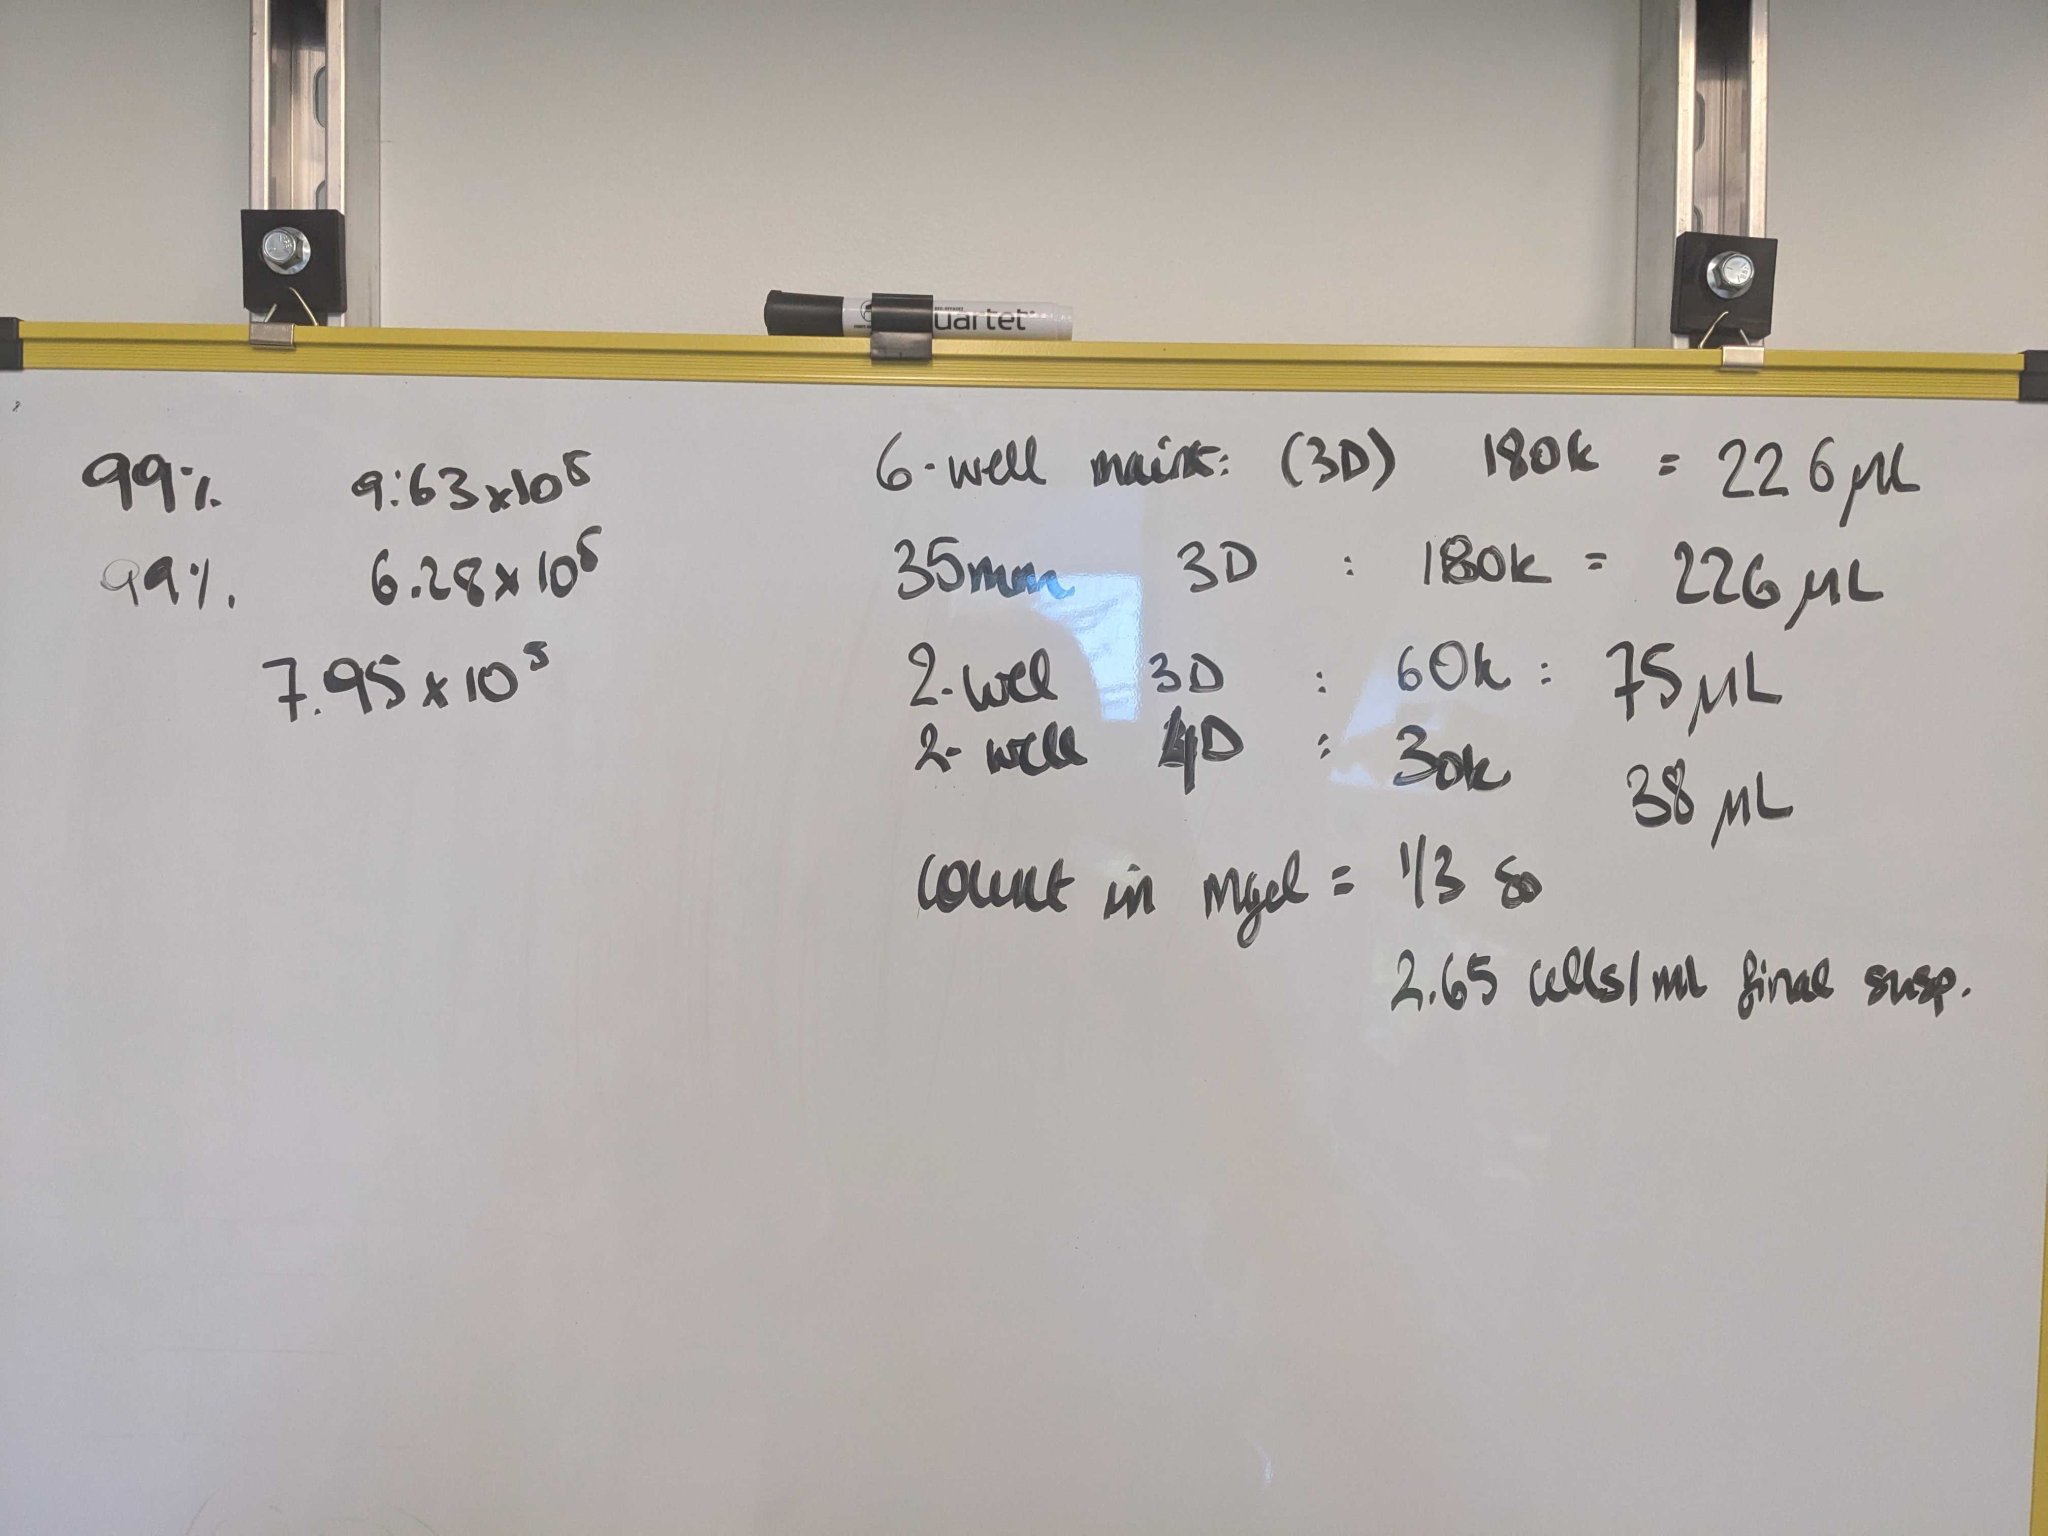 uartet
99% 9.63x10⁵
99% 6.28x10⁵
7.95x10⁵
6-well maint: (3D) 180k = 226µL
35mm 3D : 180k = 226µL
2-well 3D : 60k : 75µL
2-well 4D : 30k 38µL
count in mgel = 1/3 so
2.65 cells/mL final susp.